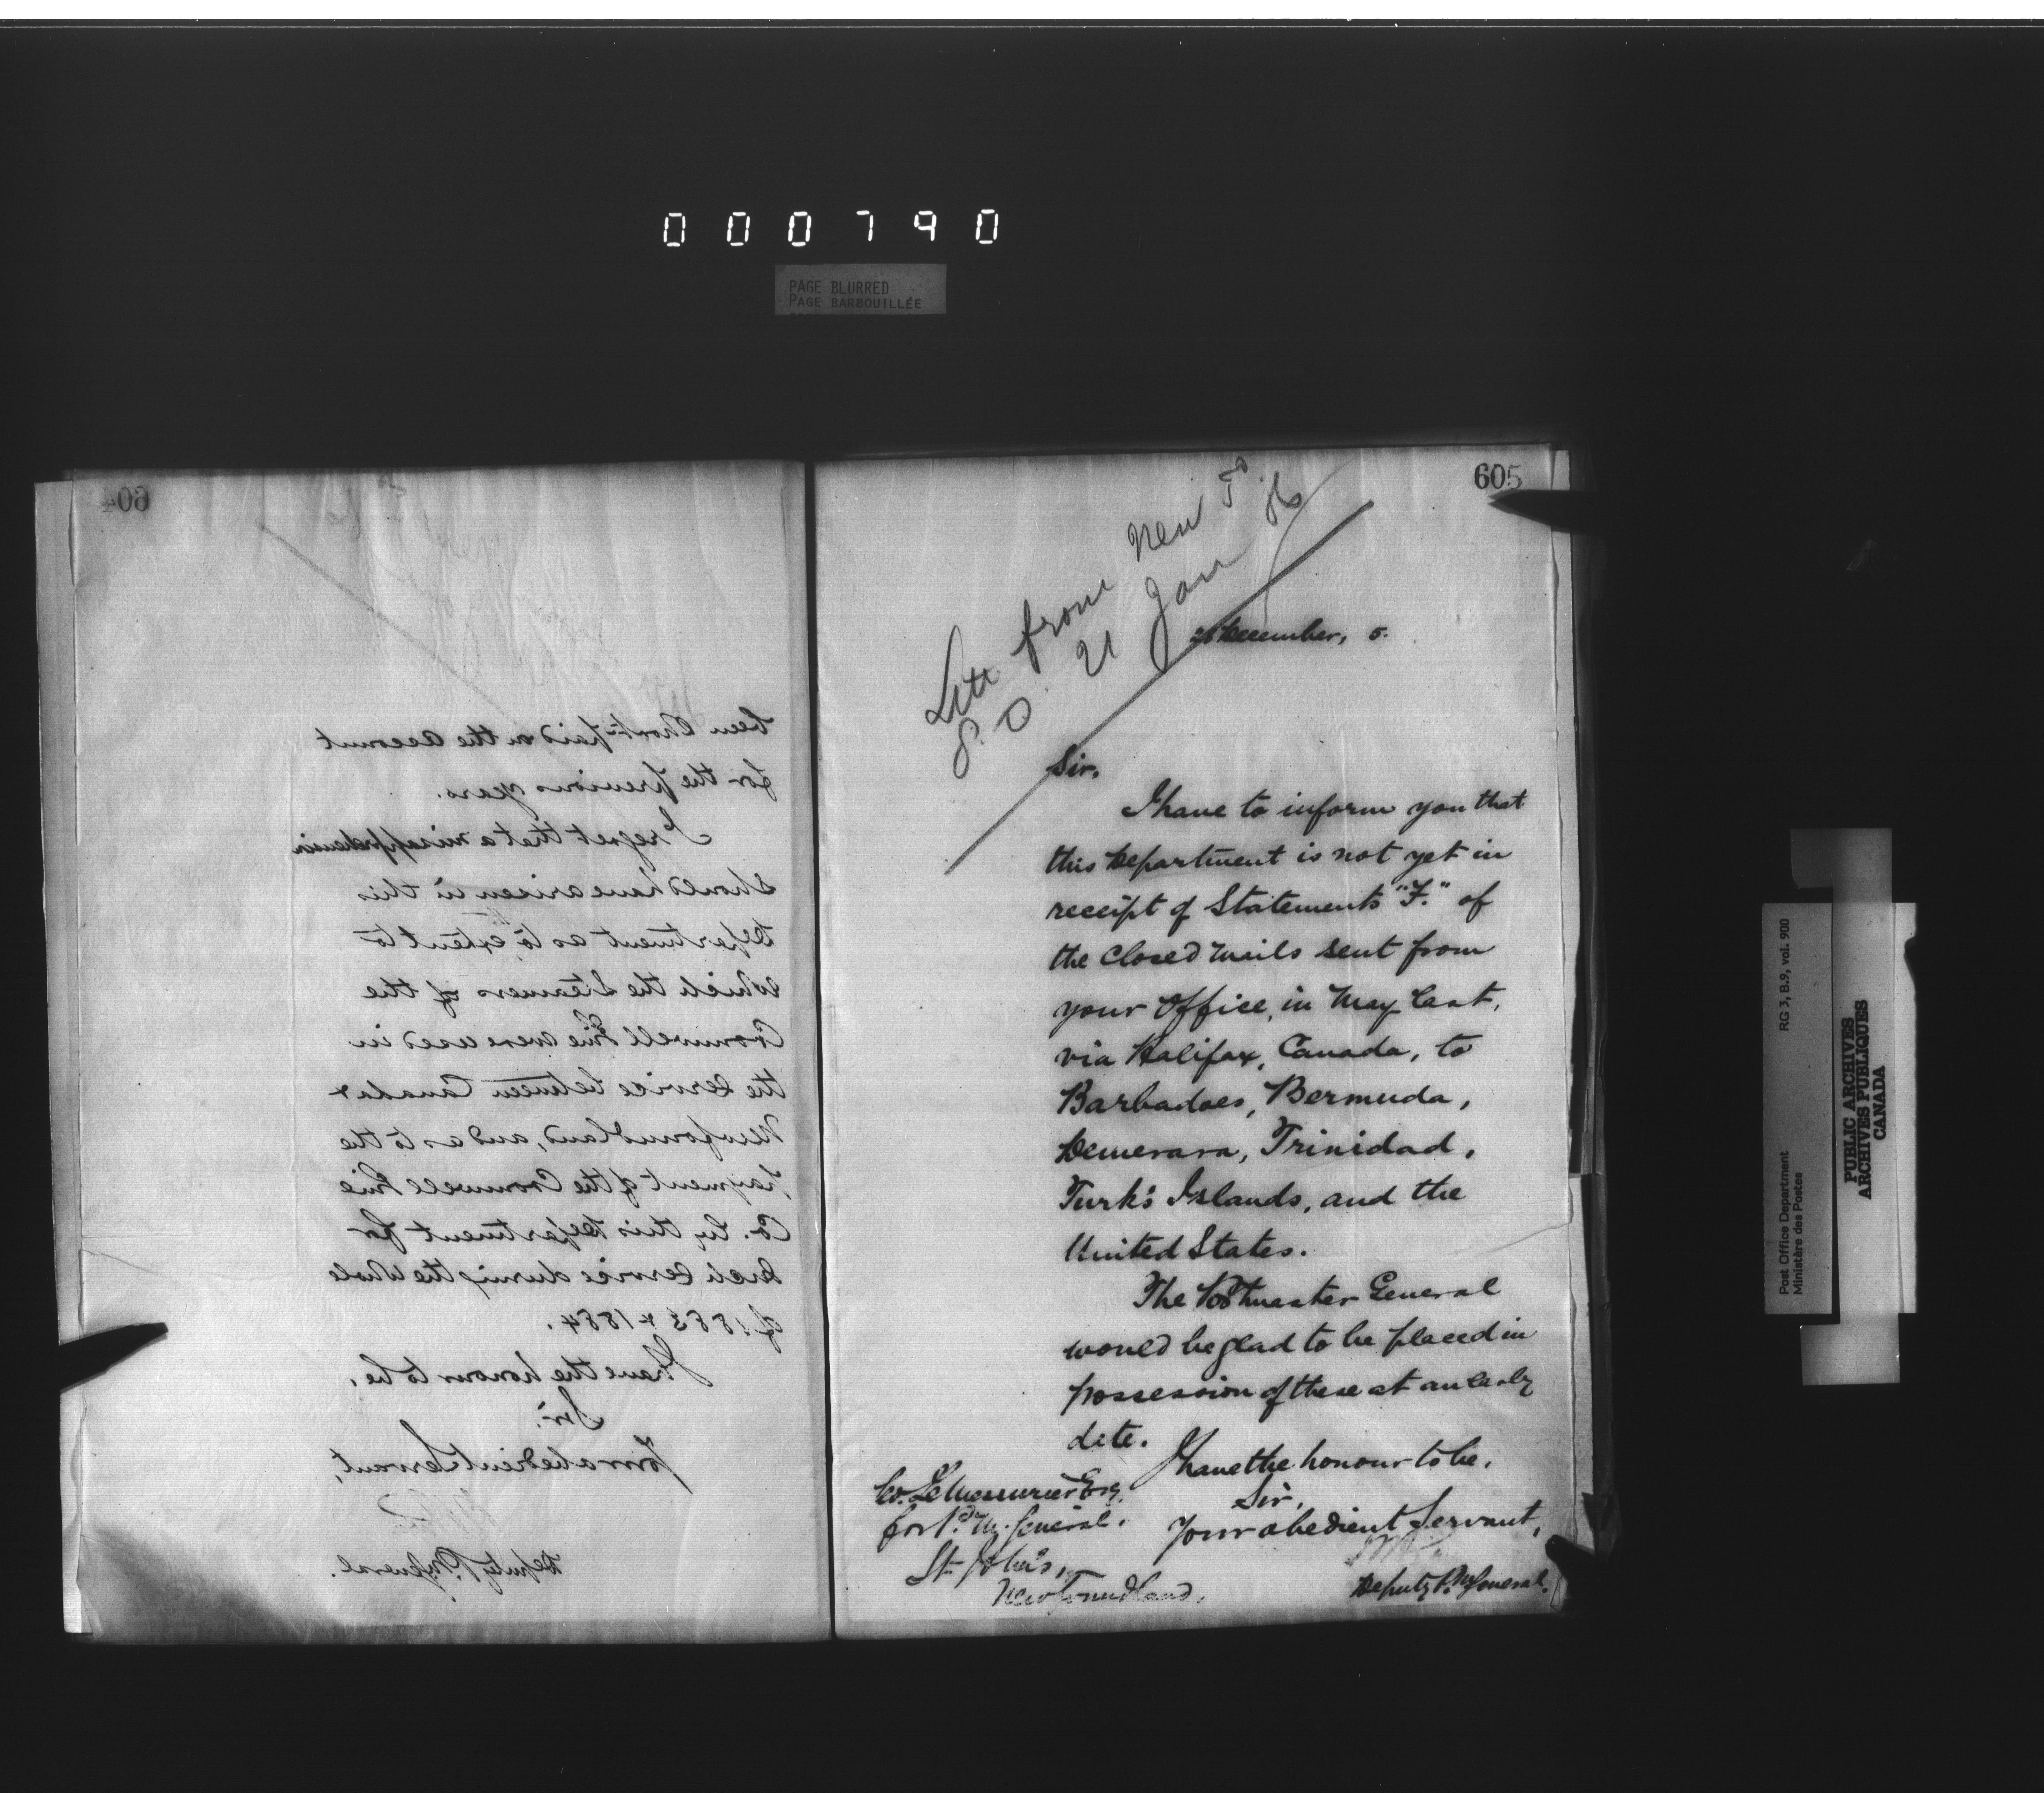 000790
PAGE BLURRED
PAGE BARBOUILLÉE
604
been short paid on the account
for the previous years.
I regret that a misapprehension
should have arisen in this
Department as to the extent to
which the Steamers of the
Cromwell Line were used in
the service between Canada &
Newfoundland, and as to the
payment of the Cromwell Line
Co. by this Department for
such service during the whole
of 1883 & 1884.
I have the honour to be,
Sir,
Your obedient Servant,
Deputy P.M. General.
605
Lett from New F.
P.O. 21 Jan 86
December, 5.
Sir,
I have to inform you that
this Department is not yet in
receipt of Statements "F." of
the Closed Mails sent from
your Office, in May last,
via Halifax, Canada, to
Barbadoes, Bermuda,
Demerara, Trinidad,
Turk's Islands, and the
United States.
The Postmaster General
would be glad to be placed in
possession of these at an early
date.
I have the honour to be,
Sir,
Your obedient Servant,
Deputy P.M. General.
LeMessurier Esq.
for P. M. General.
St. John's,
Newfoundland.
Post Office Department
Ministère des Postes
RG 3, B.9, vol. 900
PUBLIC ARCHIVES
ARCHIVES PUBLIQUES
CANADA